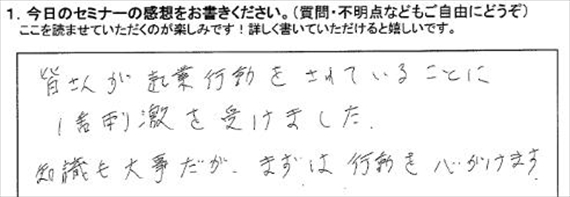 1. 今日のセミナーの感想をお書きください。(質問・不明点などもご自由にどうぞ)
ここを読ませていただくのが楽しみです！詳しく書いていただけると嬉しいです。
皆さんが起業行動をされていることに
刺激を受けました.
知識も大事だが、まずは行動を心がけます